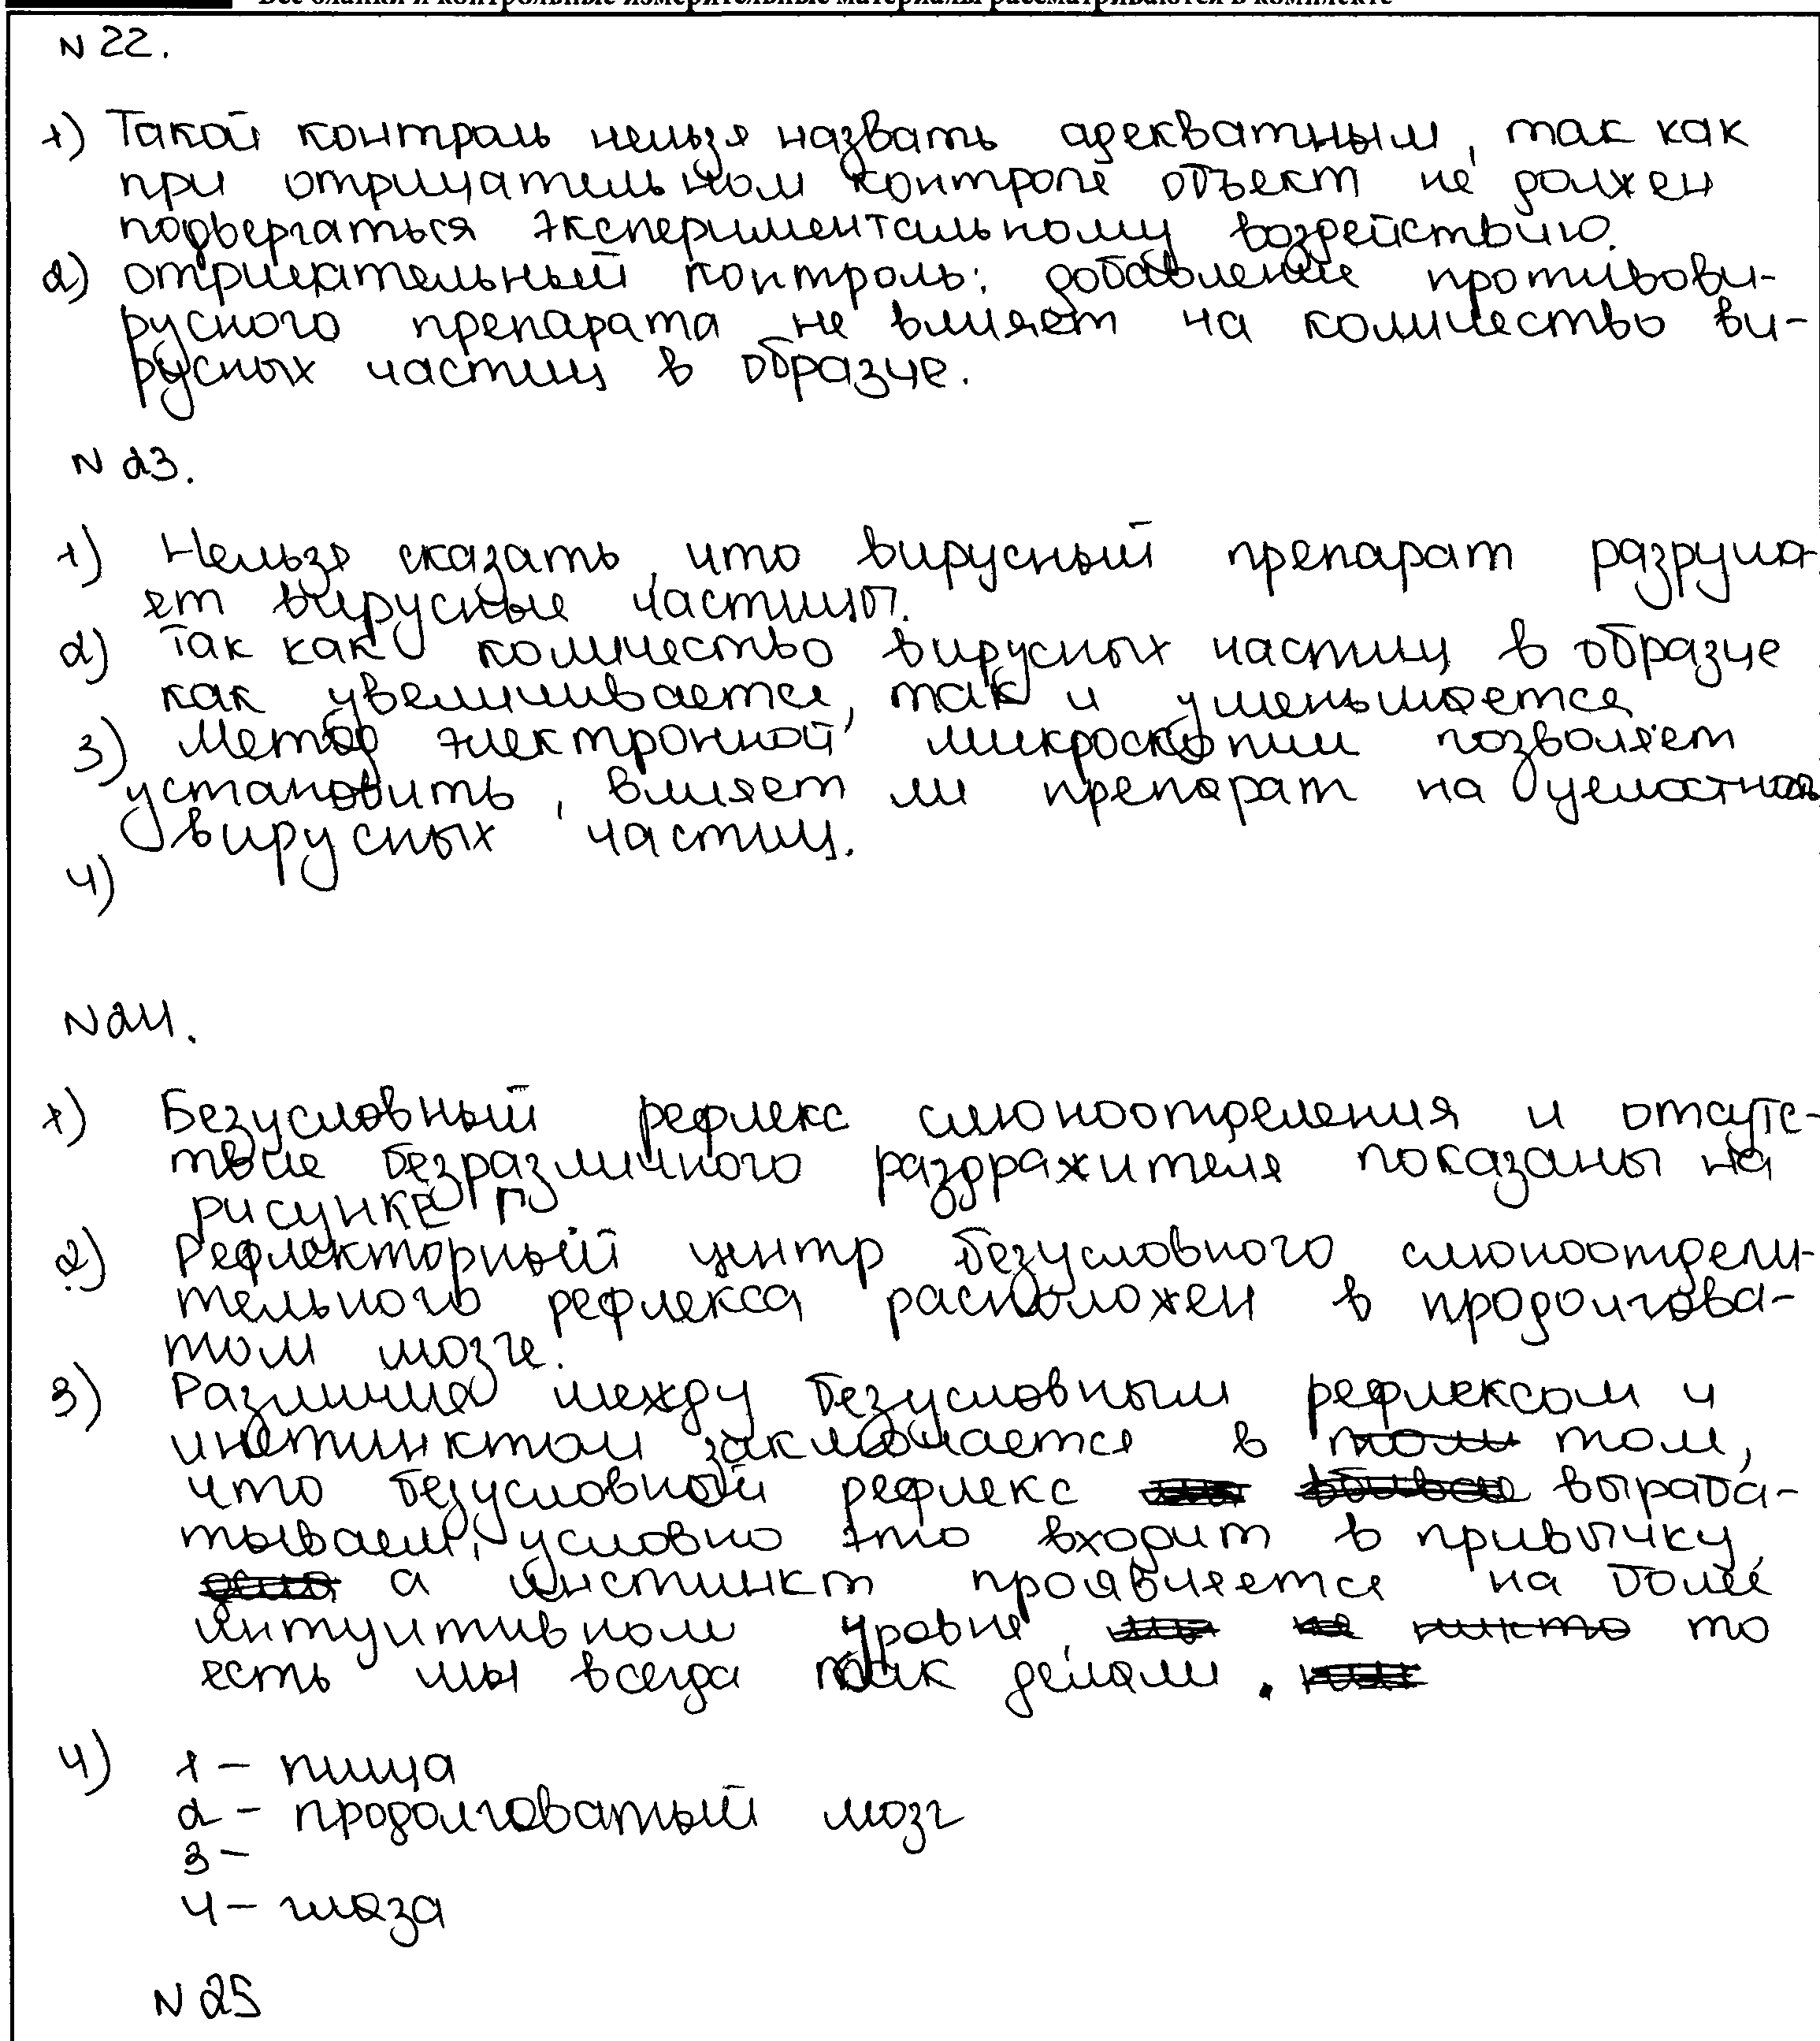 Все бланки и контрольные измерительные материалы рассматриваются в комплекте
N 22.
1) Такой контроль нельзя назвать адекватным, так как
при отрицательном контроле объект не должен
подвергаться экспериментальному воздействию.
2) отрицательный контроль: добавление противови-
русного препарата не влияет на количество ви-
русных частиц в образце.
N 23.
1) Нельзя сказать, что вирусный препарат разруша-
ет вирусные частицы.
2) Так как количество вирусных частиц в образце
как увеличивается, так и уменьшается
3) Метод электронной микроскопии позволяет
установить, влияет ли препарат на целостность
вирусных частиц.
4)
N 24.
1) Безусловный рефлекс слюноотделения и отсутс-
твие безразличного раздражителя показаны на
рисунке Г
2) Рефлекторный центр безусловного слюноотдели-
тельного рефлекса расположен в продолгова-
том мозге.
3) Различия между безусловным рефлексом и
инстинктом заключается в том том,
что безусловной рефлекс вырабa-
тываем, условно это входит в привычку,
а инстинкт проявляется на более
интуитивном уровне, никто то
есть мы всегда так делали.
4) 1 - пища
2 - продолговатый мозг
3 -
4 - глаза
N 25